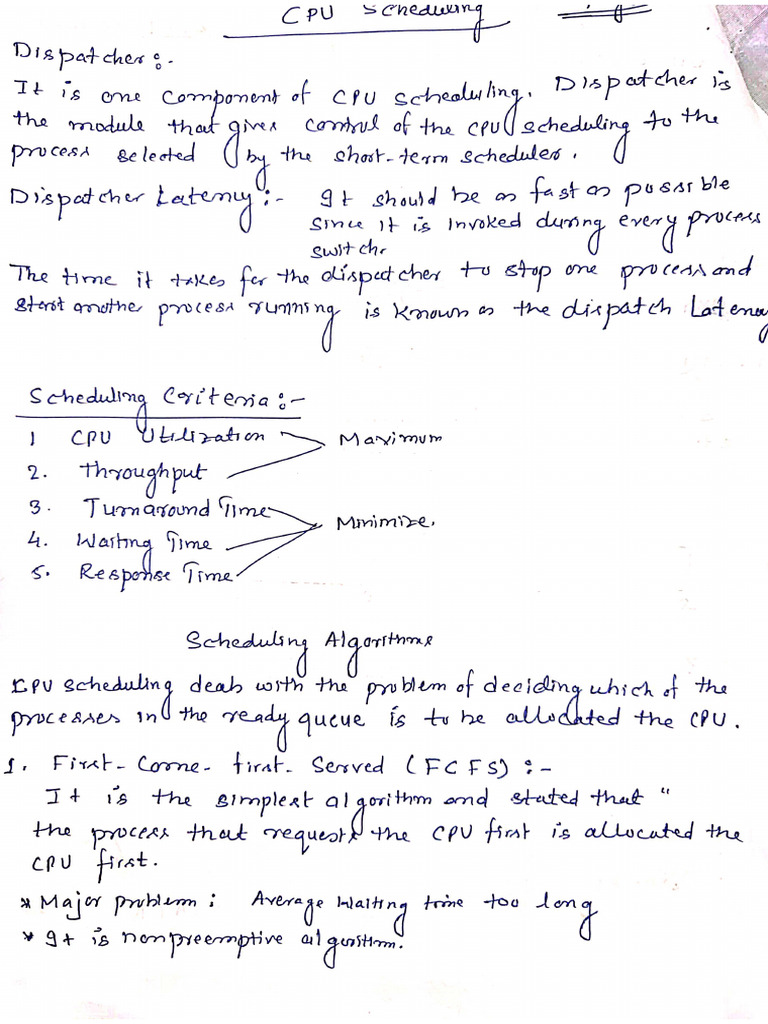 CPU Scheduling
Dispatcher :-
It is one component of CPU scheduling. Dispatcher is
the module that gives control of the CPU scheduling to the
process selected by the short-term scheduler.
Dispatcher Latency :- It should be as fast as possible
since it is invoked during every process
switch.
The time it takes for the dispatcher to stop one process and
start another process running is known as the dispatch Latency
Scheduling Criteria :-
1 CPU Utilization
Maximum
2. Throughput
3. Turnaround Time
Minimize.
4. Waiting Time
5. Response Time
Scheduling Algorithms
CPU scheduling deals with the problem of deciding which of the
processes in the ready queue is to be allocated the CPU.
1. First-Come-first-Served (FCFS) :-
It is the simplest algorithm and stated that "
the process that requests the CPU first is allocated the
CPU first.
* Major problem : Average Waiting time too long
* It is nonpreemptive algorithm.